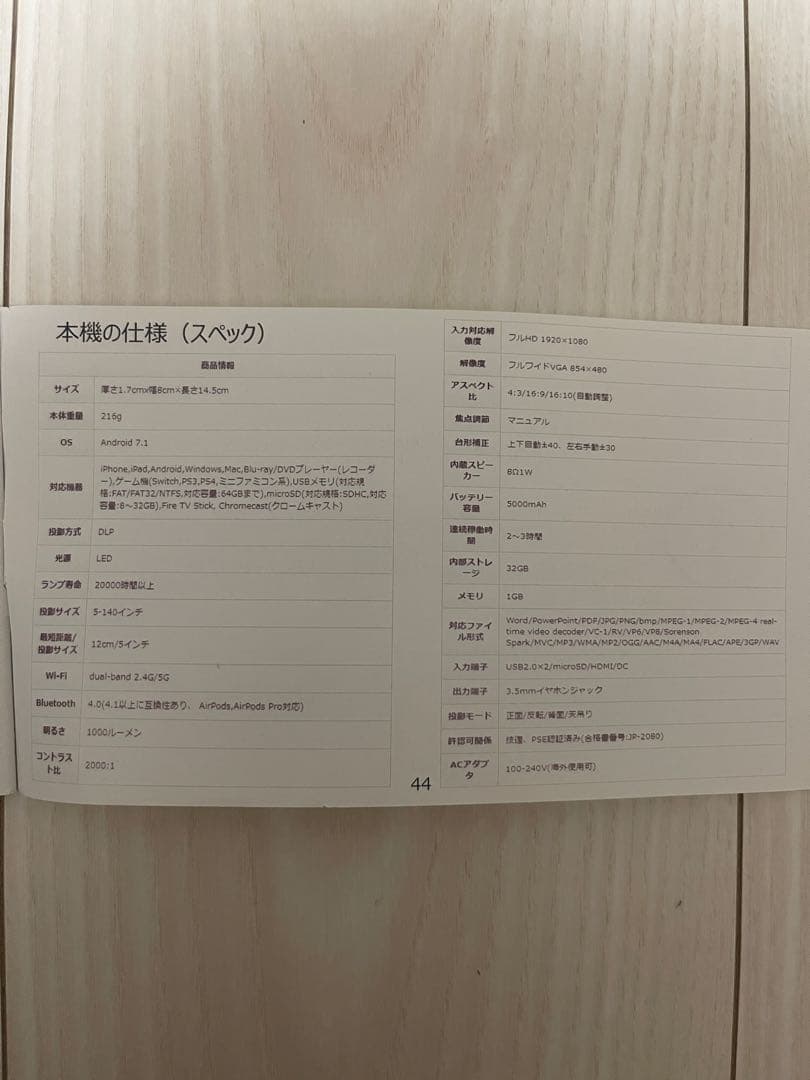 本機の仕様（スペック）
商品情報
サイズ 厚さ1.7cm×幅8cm×長さ14.5cm
本体重量 216g
OS Android 7.1
対応機器 iPhone,iPad,Android,Windows,Mac,Blu-ray/DVDプレーヤー(レコーダ
ー),ゲーム機(Switch,PS3,PS4,ミニファミコン系),USBメモリ(対応規
格:FAT/FAT32/NTFS,対応容量:64GBまで),microSD(対応規格:SDHC,対応
容量:8～32GB),Fire TV Stick, Chromecast(クロームキャスト)
投影方式 DLP
光源 LED
ランプ寿命 20000時間以上
投影サイズ 5-140インチ
最短距離/
投影サイズ 12cm/5インチ
Wi-Fi dual-band 2.4G/5G
Bluetooth 4.0(4.1以上に互換性あり、 AirPods,AirPods Pro対応)
明るさ 1000ルーメン
コントラス
ト比 2000:1
入力対応解
像度 フルHD 1920×1080
解像度 フルワイドVGA 854×480
アスペクト
比 4:3/16:9/16:10(自動調整)
焦点調節 マニュアル
台形補正 上下自動±40、左右手動±30
内蔵スピー
カー 8Ω1W
バッテリー
容量 5000mAh
連続稼働時
間 2～3時間
内部ストレ
ージ 32GB
メモリ 1GB
対応ファイ
ル形式 Word/PowerPoint/PDF/JPG/PNG/bmp/MPEG-1/MPEG-2/MPEG-4 real-
time video decoder/VC-1/RV/VP6/VP8/Sorenson
Spark/MVC/MP3/WMA/MP2/OGG/AAC/M4A/MA4/FLAC/APE/3GP/WAV
入力端子 USB2.0×2/microSD/HDMI/DC
出力端子 3.5mmイヤホンジャック
投影モード 正面/反転/背面/天吊り
許認可関係 技適、PSE認証済み(合格書番号:JP-2080)
ACアダプ
タ 100-240V(海外使用可)
44